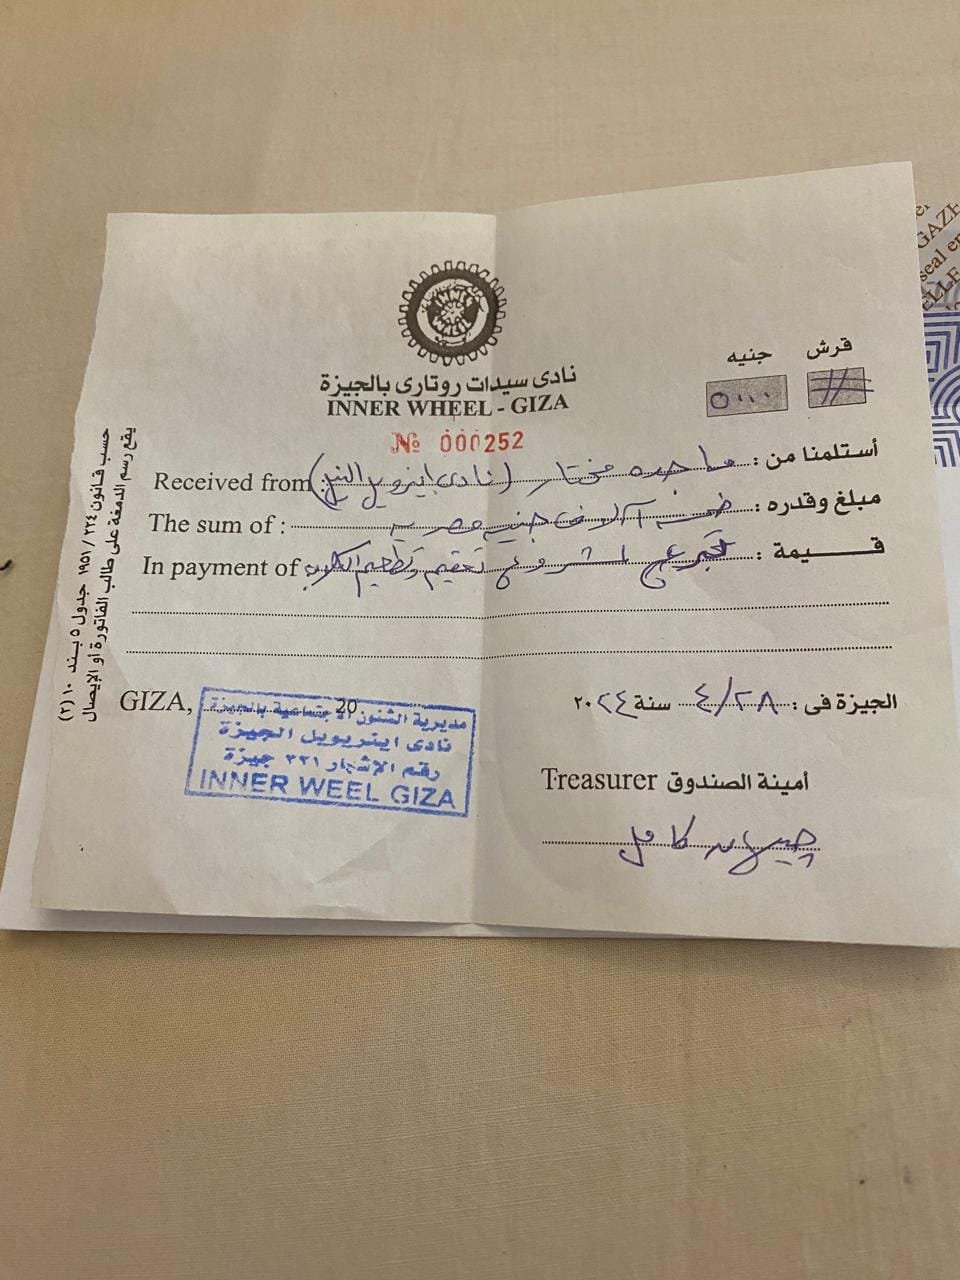 قرش
جنيه
نادى سيدات روتارى بالجيزة
INNER WHEEL - GIZA
٥٠٠٠
№ 000252
أستلمنا من : ماجده مختار (نادى اينرويل النيل) Received from
مبلغ وقدره : خمسة آلاف جنيه مصرية The sum of :
قيمة : تبرع لمشروع تعقيم وتطعيم الكلاب In payment of
الجيزة فى : ٢٨/٤ سنة ٢٠٢٤
GIZA, 20
مديرية الشئون الاجتماعية بالجيزة
نادى اينرويل الجيزة
رقم الإشهار ٢٢١ جيزة
INNER WEEL GIZA
Treasurer أمينة الصندوق
كامل
حسب قانون ٢٢٤ / ١٩٥١ جدول ٥ بند ١٠ (٢)
يقع رسم الدمغة على طالب الفاتورة أو الإيصال
GAZE
seal
ELLE